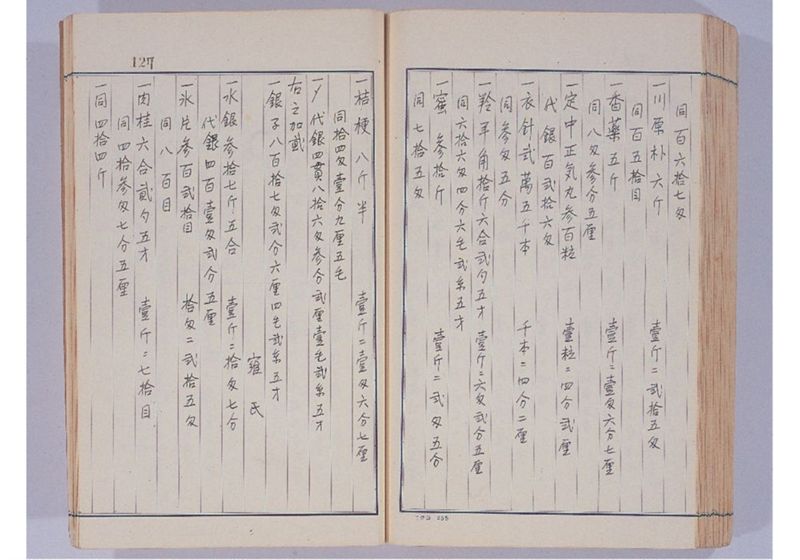 同百六拾七匁
一川原朴 六斤 壹斤ニ貳拾五匁
同百五拾目
一香薬 五斤 壹斤ニ壹匁六分七厘
同八匁参分五厘
一定中正気丸参百粒 壹粒ニ四分貳厘
代銀百貳拾六匁
一衣針貳萬五千本 千本ニ四分二厘
同参匁五分
一羚羊角拾斤六合貳勺五才 壹斤ニ六匁貳分五厘
同六拾六匁四分六毛貳糸五才
一蜜 参拾斤 壹斤ニ貳匁五分
同七拾五匁
一桔梗 八斤半 壹斤ニ壹匁六分七厘
同拾四匁壹分九厘五毛
〆 代銀四貫八拾六匁参分貳厘壹毛貳糸五才
右之加貳
一銀子八百拾七匁貳分六厘四毛貳糸五才
寵氏
一水銀参拾七斤五合 壹斤ニ拾匁七分
代銀四百壹匁貳分五厘
一氷片参百貳拾目 拾匁ニ貳拾五匁
同八百目
一肉桂六合貳勺五才 壹斤ニ七拾目
同四拾参匁七分五厘
一同四拾四斤
127